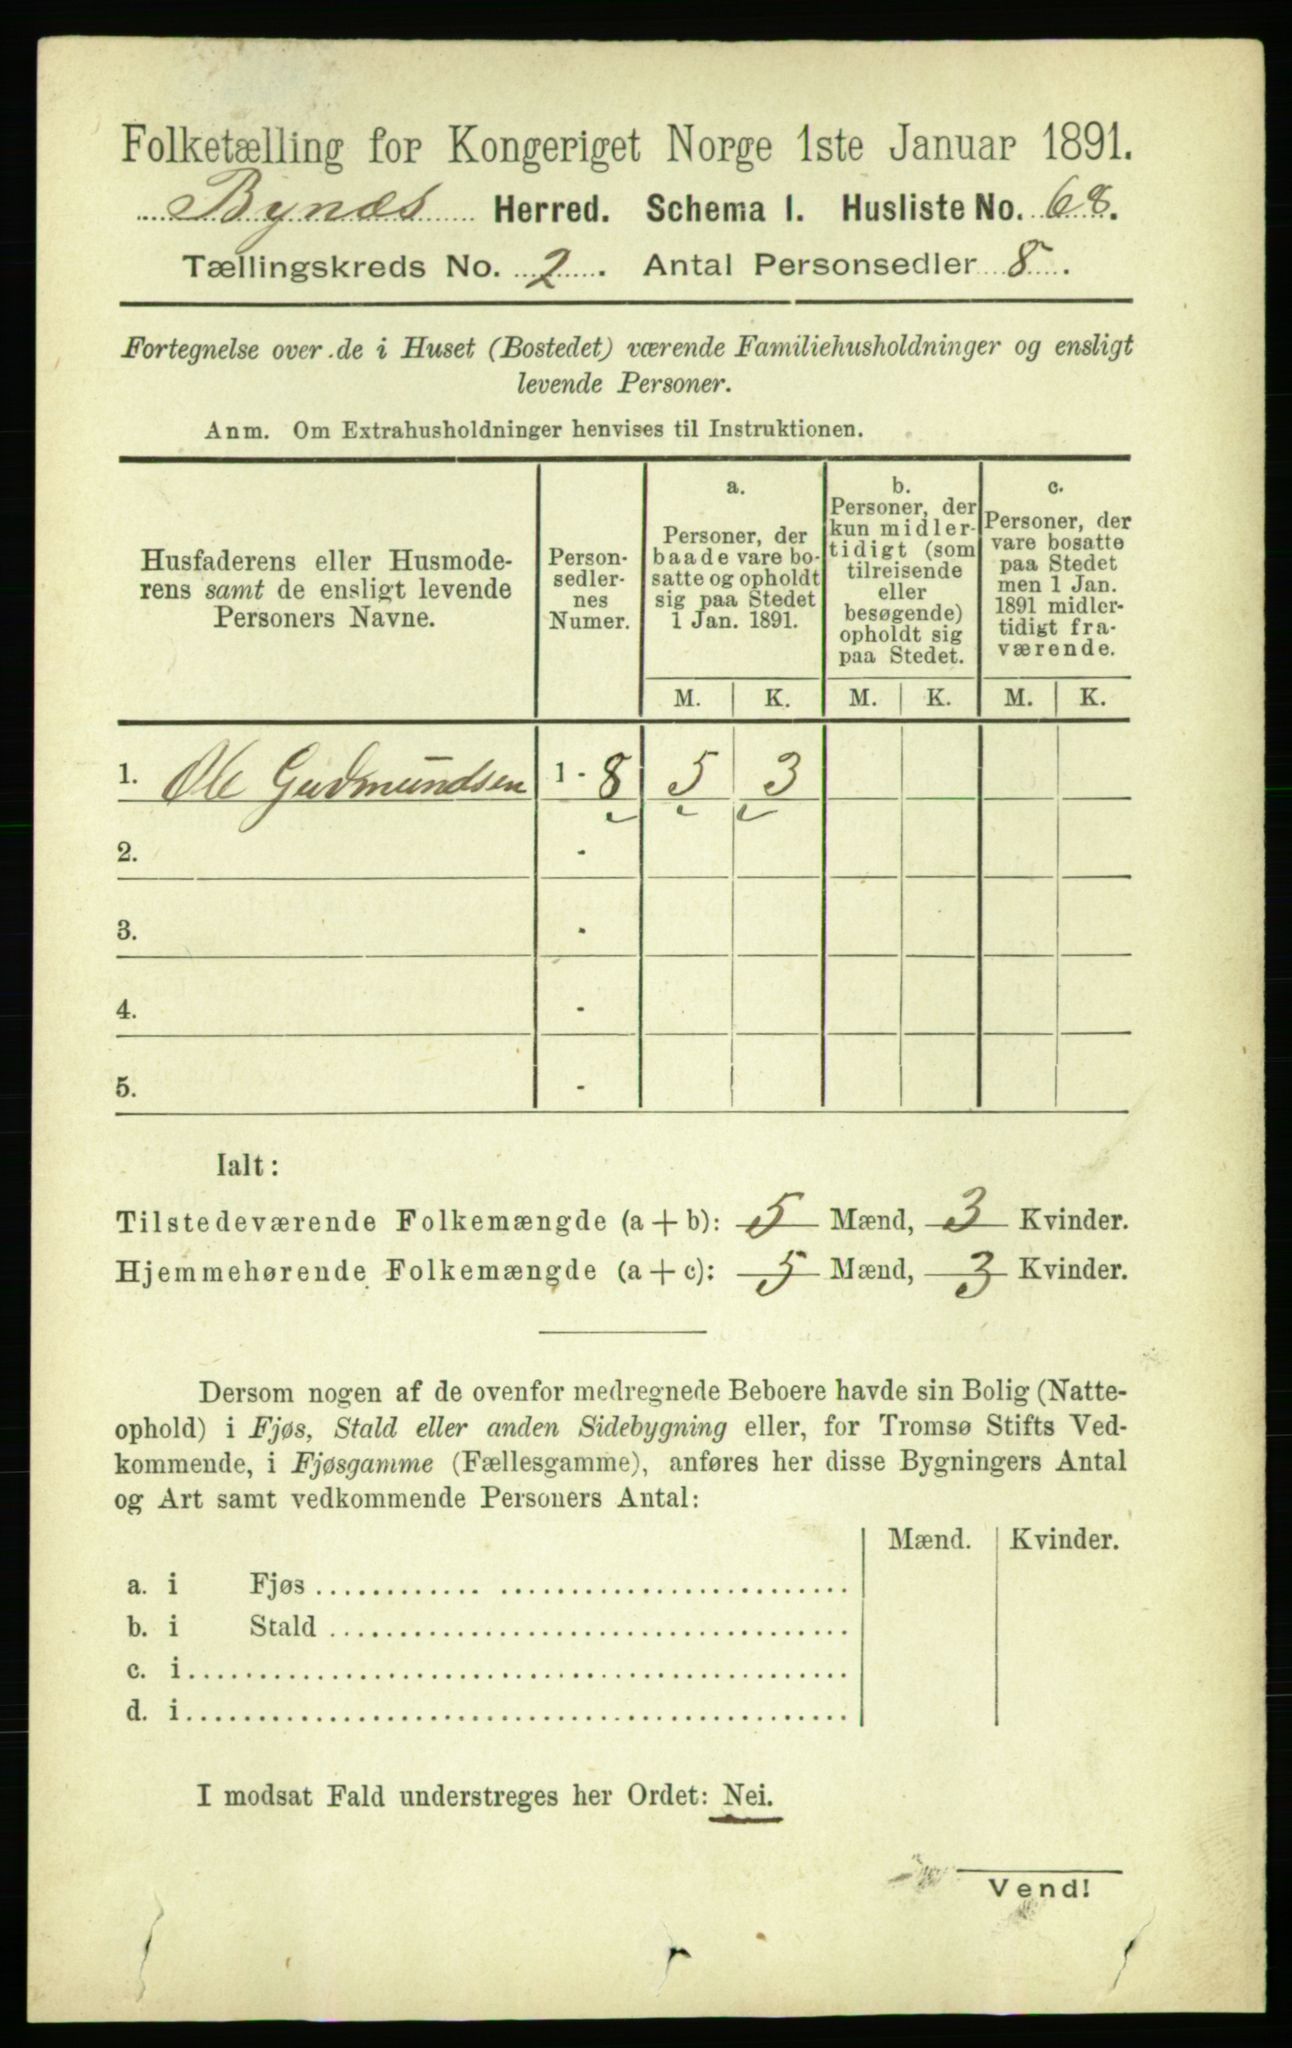 Folketælling for Kongeriget Norge 1ste Januar 1891.
Bynæs Herred. Schema I. Husliste No. 68.
Tællingskreds No. 2. Antal Personsedler 8.
Fortegnelse over de i Huset (Bostedet) værende Familiehusholdninger og ensligt
levende Personer.
Anm. Om Extrahusholdninger henvises til Instruktionen.
Husfaderens eller Husmode-
rens samt de ensligt levende
Personers Navne.
Person-
sedler-
nes
Numer.
a.
Personer, der
baade vare bo-
satte og opholdt
sig paa Stedet
1 Jan. 1891.
b.
Personer, der
kun midler-
tidigt (som
tilreisende
eller
besøgende)
opholdt sig
paa Stedet.
c.
Personer, der
vare bosatte
paa Stedet
men 1 Jan.
1891 midler-
tidigt fra-
værende.
M. K. M. K. M. K.
1. Ole Gudmundsen 1 - 8 5 3
2. -
3. -
4. -
5. -
Ialt:
Tilstedeværende Folkemængde (a + b): 5 Mænd, 3 Kvinder.
Hjemmehørende Folkemængde (a + c): 5 Mænd, 3 Kvinder.
Dersom nogen af de ovenfor medregnede Beboere havde sin Bolig (Natte-
ophold) i Fjøs, Stald eller anden Sidebygning eller, for Tromsø Stifts Ved-
kommende, i Fjøsgamme (Fællesgamme), anføres her disse Bygningers Antal
og Art samt vedkommende Personers Antal:
Mænd. Kvinder.
a. i Fjøs
b. i Stald
c. i
d. i
I modsat Fald understreges her Ordet: Nei.
Vend!